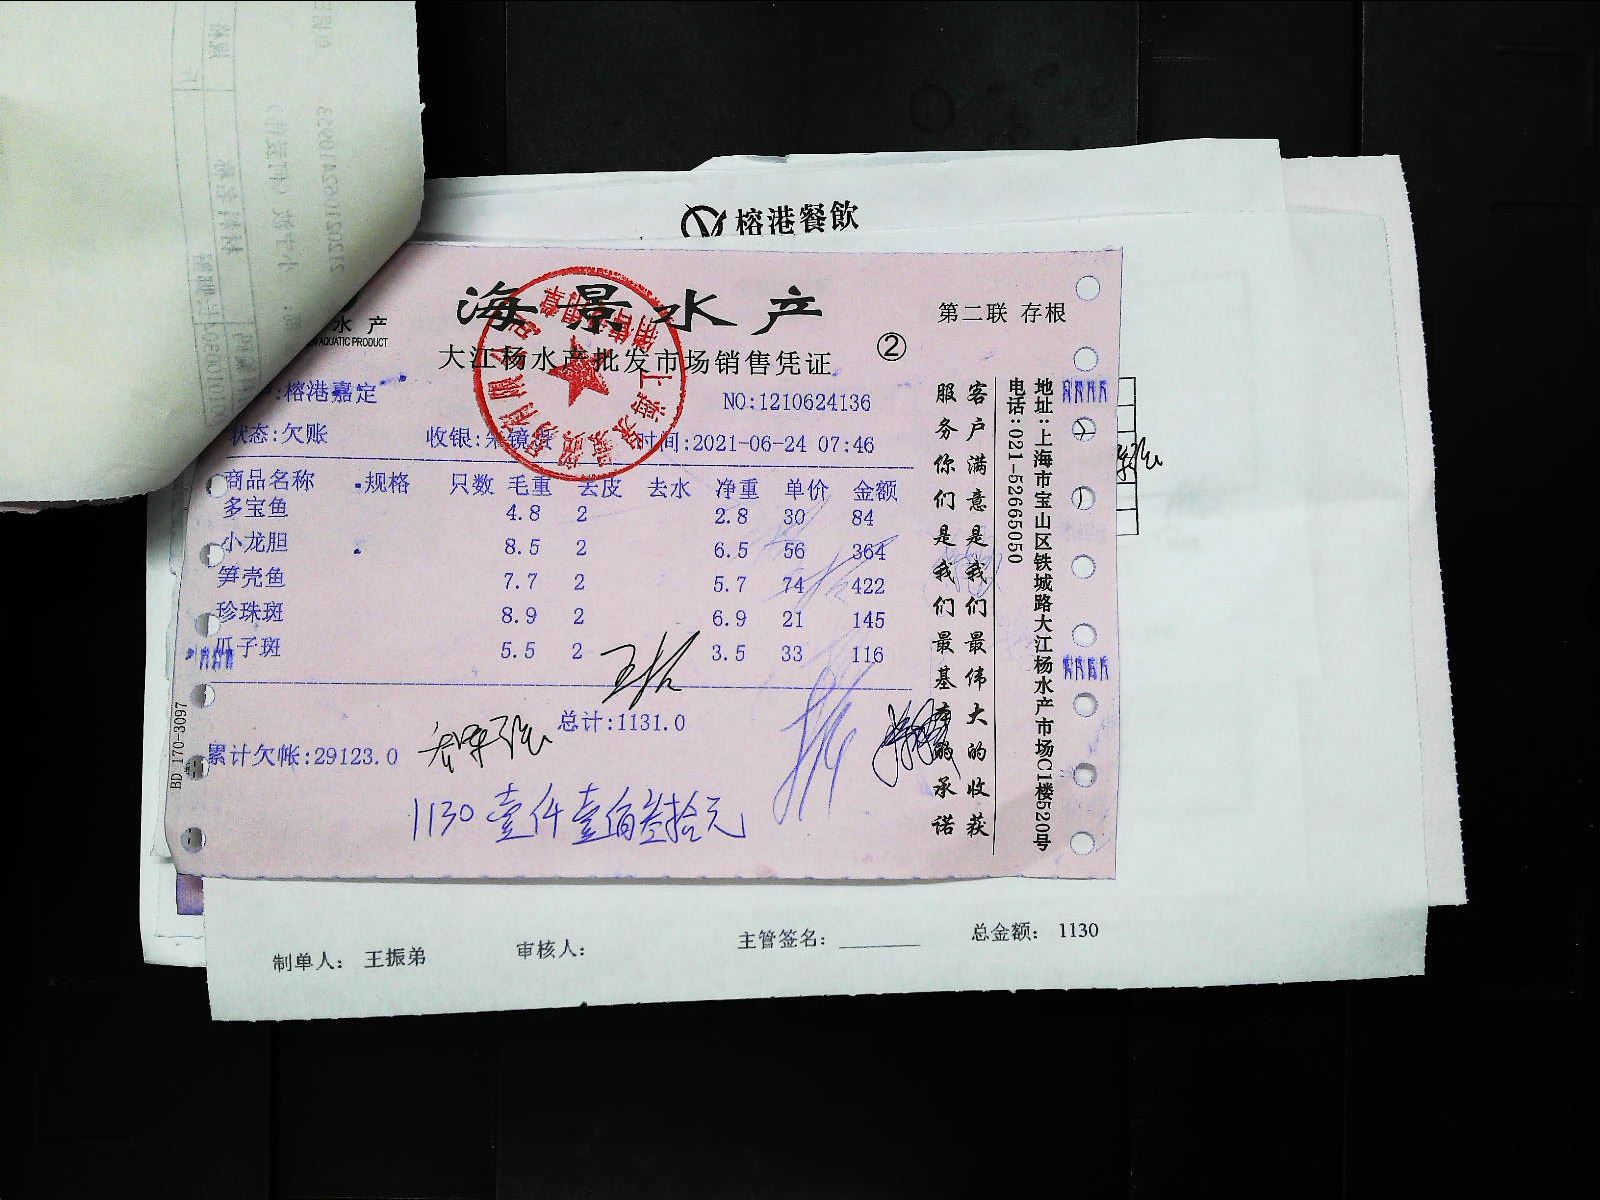 榕港餐飲
海景水产
水产
AQUATIC PRODUCT
大江杨水产批发市场销售凭证
②
第二联 存根
:榕港嘉定
NO:1210624136
状态:欠账
收银:
时间:2021-06-24 07:46
商品名称 规格 只数 毛重 去皮 去水 净重 单价 金额
多宝鱼 4.8 2 2.8 30 84
小龙胆 8.5 2 6.5 56 364
笋壳鱼 7.7 2 5.7 74 422
珍珠斑 8.9 2 6.9 21 145
瓜子斑 5.5 2 3.5 33 116
总计:1131.0
累计欠帐:29123.0
1130 壹仟壹佰叁拾元
客户满意是我们最伟大的收获
服务你们是我们最基本的承诺
地址:上海市宝山区铁城路大江杨水产市场C1楼520号
电话:021-52665050
BD 170-3097
制单人: 王振弟
审核人:
主管签名:
总金额: 1130